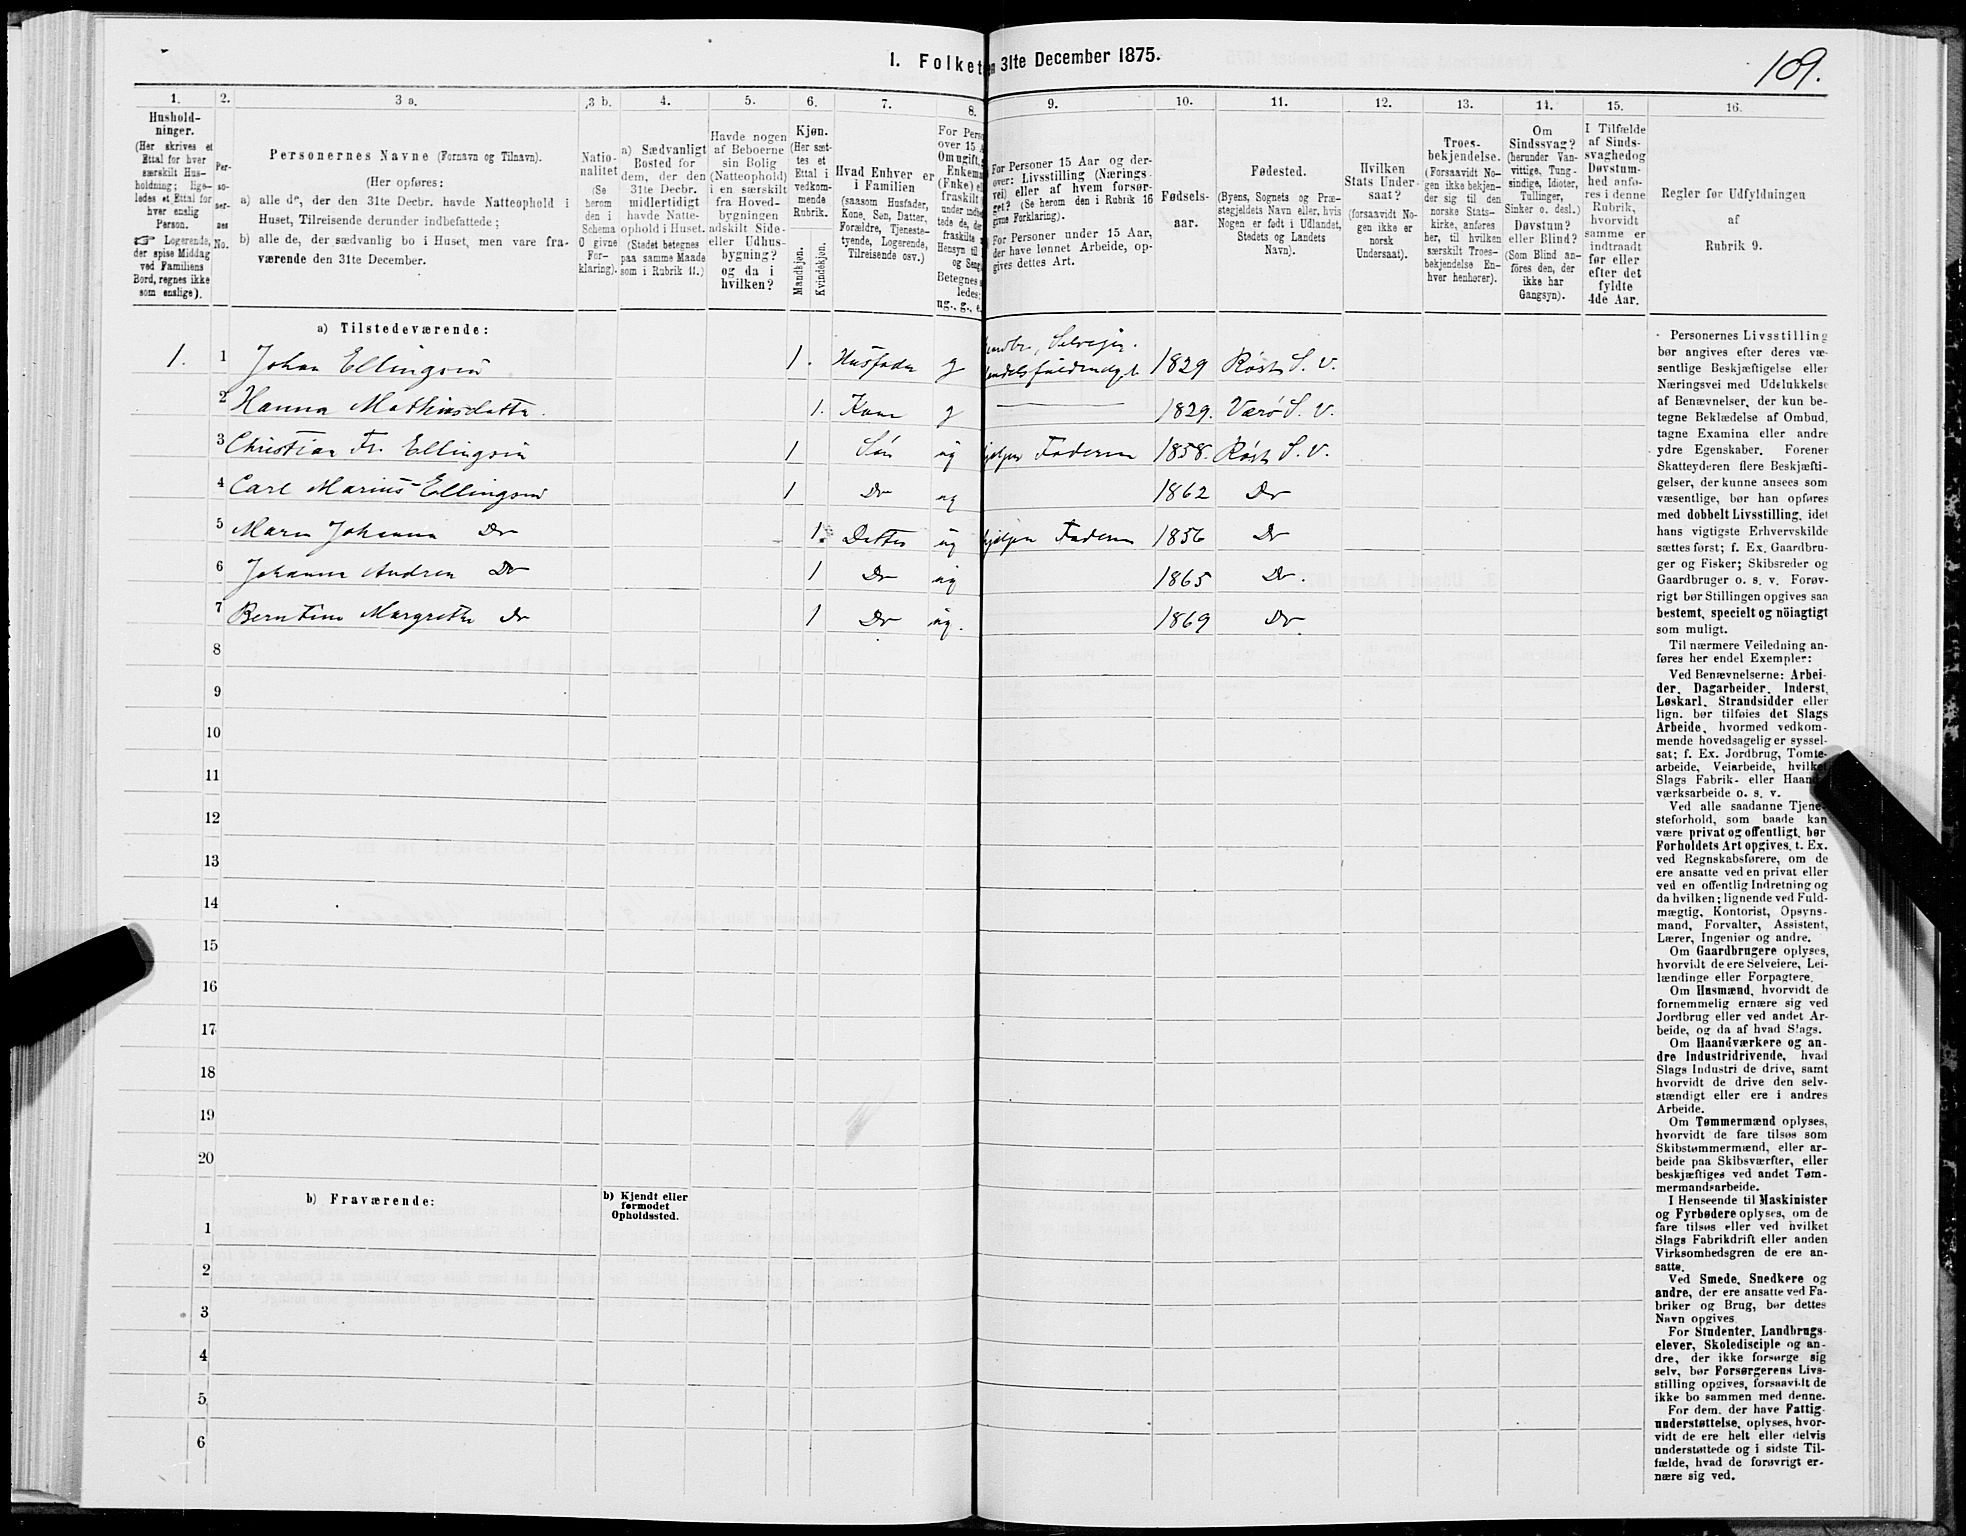 1. Folket
en 31te December 1875.
109.
1.
2.
3 a.
3 b.
4.
5.
6.
7.
8.
9.
10.
11.
12.
13.
14.
15.
16.
Hushold-
ninger.
(Her skrives et
Ettal for hver
særskilt Hus-
holdning; lige-
ledes et Ettal for
hver enslig
Person.
☞ Logerende,
der spise Middag
ved Familiens
Bord, regnes ikke
som enslige).
Per-
so-
ner-
nes
No.
Personernes Navne (Fornavn og Tilnavn).
(Her opføres:
a) alle de, der den 31te Decbr. havde Natteophold i
Huset, Tilreisende derunder indbefattede;
b) alle de, der sædvanlig bo i Huset, men vare fra-
værende den 31te December.
Natio-
nalitet
(Se
herom
den i
Schema
O givne
For-
klaring).
a) Sædvanligt
Bosted for
dem, der den
31te Decbr.
midlertidigt
havde Natte-
ophold i Huset.
(Stedet betegnes
paa samme Maade
som i Rubrik 11.)
Havde nogen
af Beboerne
sin Bolig
(Natteophold)
i en særskilt
fra Hoved-
bygningen
adskilt Side-
eller Udhus-
bygning?
og da i
hvilken?
Kjøn.
(Her sæt-
tes et
Ettal i
vedkom-
mende
Rubrik.
Mandkjøn.
Kvindekjøn.
Hvad Enhver er
i Familien
(saasom Husfader,
Kone, Søn, Datter,
Forældre, Tjeneste-
tyende, Logerende,
Tilreisende osv.)
For Pers
over 15 A
Om ugift, g
Enkem
(Enke) el
fraskilt
under indbe
tede de, der
fraskilte
Hensyn til
og Seng
Betegnes s
ledes:
ug., g., e.
For Personer 15 Aar og der-
over: Livsstilling (Nærings-
vei) eller af hvem forsør-
get? (Se herom den i Rubrik 16
givne Forklaring).
For Personer under 15 Aar,
der have lønnet Arbeide, op-
gives dettes Art.
Fødsels-
aar.
Fødested.
(Byens, Sognets og Præ-
stegjeldets Navn eller, hvis
Nogen er født i Udlandet,
Stedets og Landets
Navn).
Hvilken
Stats Under-
saat?
(forsaavidt No-
gen ikke er
norsk
Undersaat).
Troes-
bekjendelse.
(Forsaavidt No-
gen ikke bekjen-
der sig til den
norske Stats-
kirke, anføres
her, til hvilken
særskilt Troes-
bekjendelse En-
hver henhører).
Om
Sindssvag?
(herunder Van-
vittige, Tung-
sindige, Idioter,
Tullinger,
Sinker o. desl.)
Døvstum?
eller Blind?
(Som Blind an-
føres den, der
ikke har
Gangsyn).
I Tilfælde
af Sinds-
svaghed og
Døvstum-
hed anfø-
res i denne
Rubrik,
hvorvidt
samme er
indtraadt
før eller
efter det
fyldte
4de Aar.
Regler før Udfyldningen
af
Rubrik 9.
a) Tilstedeværende:
1. 1 Johan Ellingsen 1. Husfader g Selveier. 1829 Røst S. V.
2 Hanna Mathiasdatter. 1. Kone g 1829. Værø S. V.
3 Christian Fr. Ellingsen 1 Søn ug hjelper Faderen 1858. Røst S. V.
4 Carl Marius Ellingsen 1 Do ug 1862 Do
5 Maren Johanna Do 1. Datter ug hjelper Faderen 1856 Do
6 Johanna Andrea Do 1 Do ug 1865 Do.
7 Berntine Margrethe Do 1 Do ug. 1869 Do
8
9
10
11
12
13
14
15
16
17
18
19
20
b) Fraværende:
b) Kjendt eller
formodet
Opholdssted.
1
2
3
4
5
6
Personernes Livsstilling
bør angives efter deres væ-
sentlige Beskjæftigelse eller
Næringsvei med Udelukkelse
af Benævnelser, der kun be-
tegne Beklædelse af Ombud,
tagne Examina eller andre
ydre Egenskaber. Forener
Skatteyderen flere Beskjæfti-
gelser, der kunne ansees som
væsentlige, bør han opføres
med dobbelt Livsstilling, idet
hans vigtigste Erhvervskilde
sættes først; f. Ex. Gaardbru-
ger og Fisker; Skibsreder og
Gaardbruger o. s. v. Forøv-
rigt bør Stillingen opgives saa
bestemt, specielt og nöiagtigt
som muligt.
Til nærmere Veiledning an-
føres her endel Exempler:
Ved Benævnelserne: Arbei-
der, Dagarbeider, Inderst,
Løskarl, Strandsidder eller
lign. bør tilføies det Slags
Arbeide, hvormed vedkom-
mende hovedsagelig er syssel-
sat; f. Ex. Jordbrug, Tomte-
arbeide, Veiarbeide, hvilket
Slags Fabrik- eller Haand-
værksarbeide o. s. v.
Ved alle saadanne Tjene-
steforhold, som baade kan
være privat og offentligt, bør
Forholdets Art opgives, f. Ex.
ved Regnskabsførere, om de
ere ansatte ved en privat eller
ved en offentlig Indretning og
da hvilken; lignende ved Fuld-
mægtig, Kontorist, Opsyns-
mand, Forvalter, Assistent,
Lærer, Ingeniør og andre.
Om Gaardbrugere oplyses,
hvorvidt de ere Selveiere, Lei-
lændinge eller Forpagtere.
Om Husmænd, hvorvidt de
fornemmelig ernære sig ved
Jordbrug eller ved andet Ar-
beide, og da af hvad Slags.
Om Haandværkere og an-
dre Industridrivende, hvad
Slags Industri de drive, samt
hvorvidt de drive den selv-
stændigt eller ere i andres
Arbeide.
Om Tømmermænd oplyses,
hvorvidt de fare tilsøs som
Skibstømmermænd, eller ar-
beide paa Skibsværfter, eller
beskjæftiges ved andet Tøm-
mermandsarbeide.
I Henseende til Maskinister
og Fyrbødere oplyses, om de
fare tilsøs eller ved hvilket
Slags Fabrikdrift eller anden
Virksomhedsgren de ere an-
satte.
Ved Smede, Snedkere og
andre, der ere ansatte ved Fa-
briker og Brug, bør dettes
Navn opgives.
For Studenter, Landbrugs-
elever, Skoledisciple og an-
dre, der ikke forsørge sig
selv, bør Forsørgerens Livs-
stilling opgives, forsaavidt de
ikke bo sammen med denne.
For dem, der have Fattig-
understøttelse, oplyses, hvor-
vidt de ere helt eller delvis
understøttede og i sidste Til-
fælde, hvad de forøvrigt er-
nære sig ved.